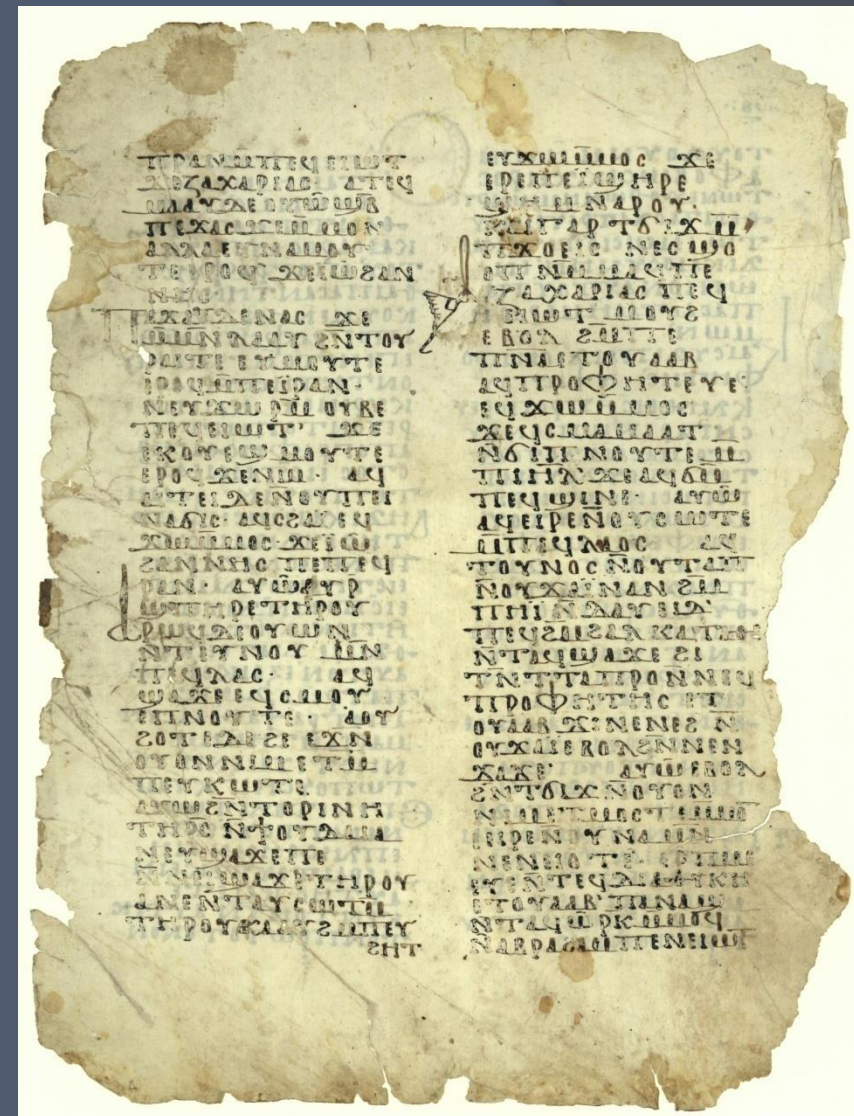 ⲡⲣⲁⲛⲙ̄ⲡⲉϥⲉⲓⲱⲧ
ϫⲉⲍⲁⲭⲁⲣⲓⲁⲥ· ⲁⲧⲉϥ
ⲙⲁⲁⲩⲇⲉⲟⲩⲱϣⲃ̄
ⲡⲉϫⲁⲥϫⲉⲙ̄ⲙⲟⲛ
ⲁⲗⲗⲁⲉⲩⲛⲁⲙⲟⲩ
ⲧⲉⲉⲣⲟϥ ϫⲉⲓⲱϩⲁⲛ
ⲛⲏⲥ
ⲡⲉϫⲁⲩⲇⲉⲛⲁⲥ ϫⲉ
ⲙⲛ̄ⲗⲁⲁⲩϩⲛ̄ⲧⲟⲩ
ⲣⲁⲓⲧⲉ ⲉⲩⲙⲟⲩⲧⲉ
ⲉⲣⲟϥⲙ̄ⲡⲉⲓⲣⲁⲛ·
ⲛⲉⲩϫⲱⲣⲙ̄ ⲟⲩⲃⲉ
ⲡⲉϥⲉⲓⲱⲧ· ϫⲉ
ⲉⲕⲟⲩⲉϣⲙⲟⲩⲧⲉ
ⲉⲣⲟϥϫⲉⲛⲓⲙ· ⲁϥ
ⲁⲓⲧⲉⲓⲇⲉⲛⲟⲩⲡⲓ
ⲛⲁϭⲓⲥ· ⲁϥⲥϩⲁⲓⲉϥ
ϫⲱⲙ̄ⲙⲟⲥ· ϫⲉⲓⲱ
ϩⲁⲛⲛⲏⲥ ⲡⲉⲡⲉϥ
ⲣⲁⲛ· ⲁⲩⲱⲁⲩⲣ
ϣⲡⲏⲣⲉⲧⲏⲣⲟⲩ
ⲣⲱϥⲇⲉⲟⲩⲱⲛ
ⲛ̄ⲧⲉⲩⲛⲟⲩ ⲙⲛ̄
ⲡⲉϥⲗⲁⲥ· ⲁϥ
ϣⲁϫⲉⲉϥⲥⲙⲟⲩ
ⲉⲡⲛⲟⲩⲧⲉ· ⲁⲟⲩ
ϩⲟⲧⲉⲇⲉϩⲉ ⲉϫⲛ
ⲟⲩⲟⲛⲛⲓⲙⲉⲧⲙ̄
ⲡⲉⲩⲕⲱⲧⲉ
ⲁⲩⲱϩⲛ̄ⲧⲟⲣⲓⲛⲏ
ⲧⲏⲣⲥ̄ⲛ̄ϯⲟⲩⲇⲁⲓⲁ
ⲛⲉⲩϣⲁϫⲉⲡⲉ
ⲛ̄ⲛⲉⲓϣⲁϫⲉⲧⲏⲣⲟⲩ
ⲁⲛⲉⲛⲧⲁⲩⲥⲱⲧⲙ̄
ⲧⲏⲣⲟⲩⲕⲁⲁⲩϩⲙ̄ⲡⲉⲩ
ϩⲏⲧ
ⲉⲩϫⲱⲙ̄ⲙⲟⲥ ϫⲉ
ⲉⲣⲉⲡⲉⲓϣⲏⲣⲉ
ϣⲏⲙⲛⲁⲣⲟⲩ·
ⲕⲁⲓⲅⲁⲣ ⲧϭⲓϫⲙ̄
ⲡϫⲟⲉⲓⲥ ⲛⲉⲥϣⲟ
ⲟⲡⲛⲙ̄ⲙⲁϥⲡⲉ
ⲍⲁⲭⲁⲣⲓⲁⲥ ⲡⲉϥ
ⲉⲓⲱⲧ ⲙⲟⲩϩ
ⲉⲃⲟⲗ ϩⲙ̄ⲡⲉ
ⲡⲛ̄ⲁⲉⲧⲟⲩⲁⲁⲃ
ⲁϥⲡⲣⲟⲫⲏⲧⲉⲩⲉ
ⲉϥϫⲱⲙ̄ⲙⲟⲥ
ϫⲉϥⲥⲙⲁⲙⲁⲁⲧ
ⲛϭⲓⲡⲛⲟⲩⲧⲉⲙ̄
ⲡⲓⲏ̄ⲗ ϫⲉⲁϥϭⲙ̄
ⲡⲉϥϣⲓⲛⲉ· ⲁⲩⲱ
ⲁϥⲉⲓⲣⲉⲛⲟⲩⲥⲱⲧⲉ
ⲙ̄ⲡⲉϥⲗⲁⲟⲥ ⲁϥ
ⲧⲟⲩⲛⲟⲥⲛⲟⲩⲧⲁⲡ
ⲛⲟⲩϫⲁⲓⲛⲁⲛϩⲙ̄
ⲡⲏⲓⲛ̄ⲇⲁⲩⲉⲓⲇ
ⲡⲉϥϩⲙ̄ϩⲁⲗ ⲕⲁⲧⲁⲑⲉ
ⲛ̄ⲧⲁϥϣⲁϫⲉ ϩⲓ
ⲧⲛ̄ⲧⲧⲁⲡⲣⲟⲛⲛⲉϥ
ⲡⲣⲟⲫⲏⲧⲏⲥ ⲉⲧ
ⲟⲩⲁⲁⲃ ϫⲓⲛⲉⲛⲉϩ ⲛ
ⲟⲩϫⲁⲓⲉⲃⲟⲗϩⲛ̄ⲛⲉⲛ
ϫⲁϫⲉ· ⲁⲩⲱⲉⲃⲟⲗ
ϩⲛ̄ⲧϭⲓϫⲛ̄ⲟⲩⲟⲛ
ⲛⲓⲙⲉⲧⲙⲟⲥⲧⲉⲙ̄ⲙⲟ
ⲉⲉⲓⲣⲉⲛⲟⲩⲛⲁⲙⲛ̄
ⲛⲉⲛⲉⲓⲟⲧⲉ· ⲉⲣⲡⲙⲉ
ⲉⲩⲉⲛ̄ⲧⲉϥⲇⲓⲁⲑⲩⲕⲏ
ⲉⲧⲟⲩⲁⲁⲃ· ⲡⲁⲛⲁϣ
ⲛ̄ⲧⲁϥⲱⲣⲕⲙ̄ⲙⲟϥ
ⲛⲁⲃⲣⲁϩⲁⲙⲡⲉⲛⲉⲓⲱⲧ